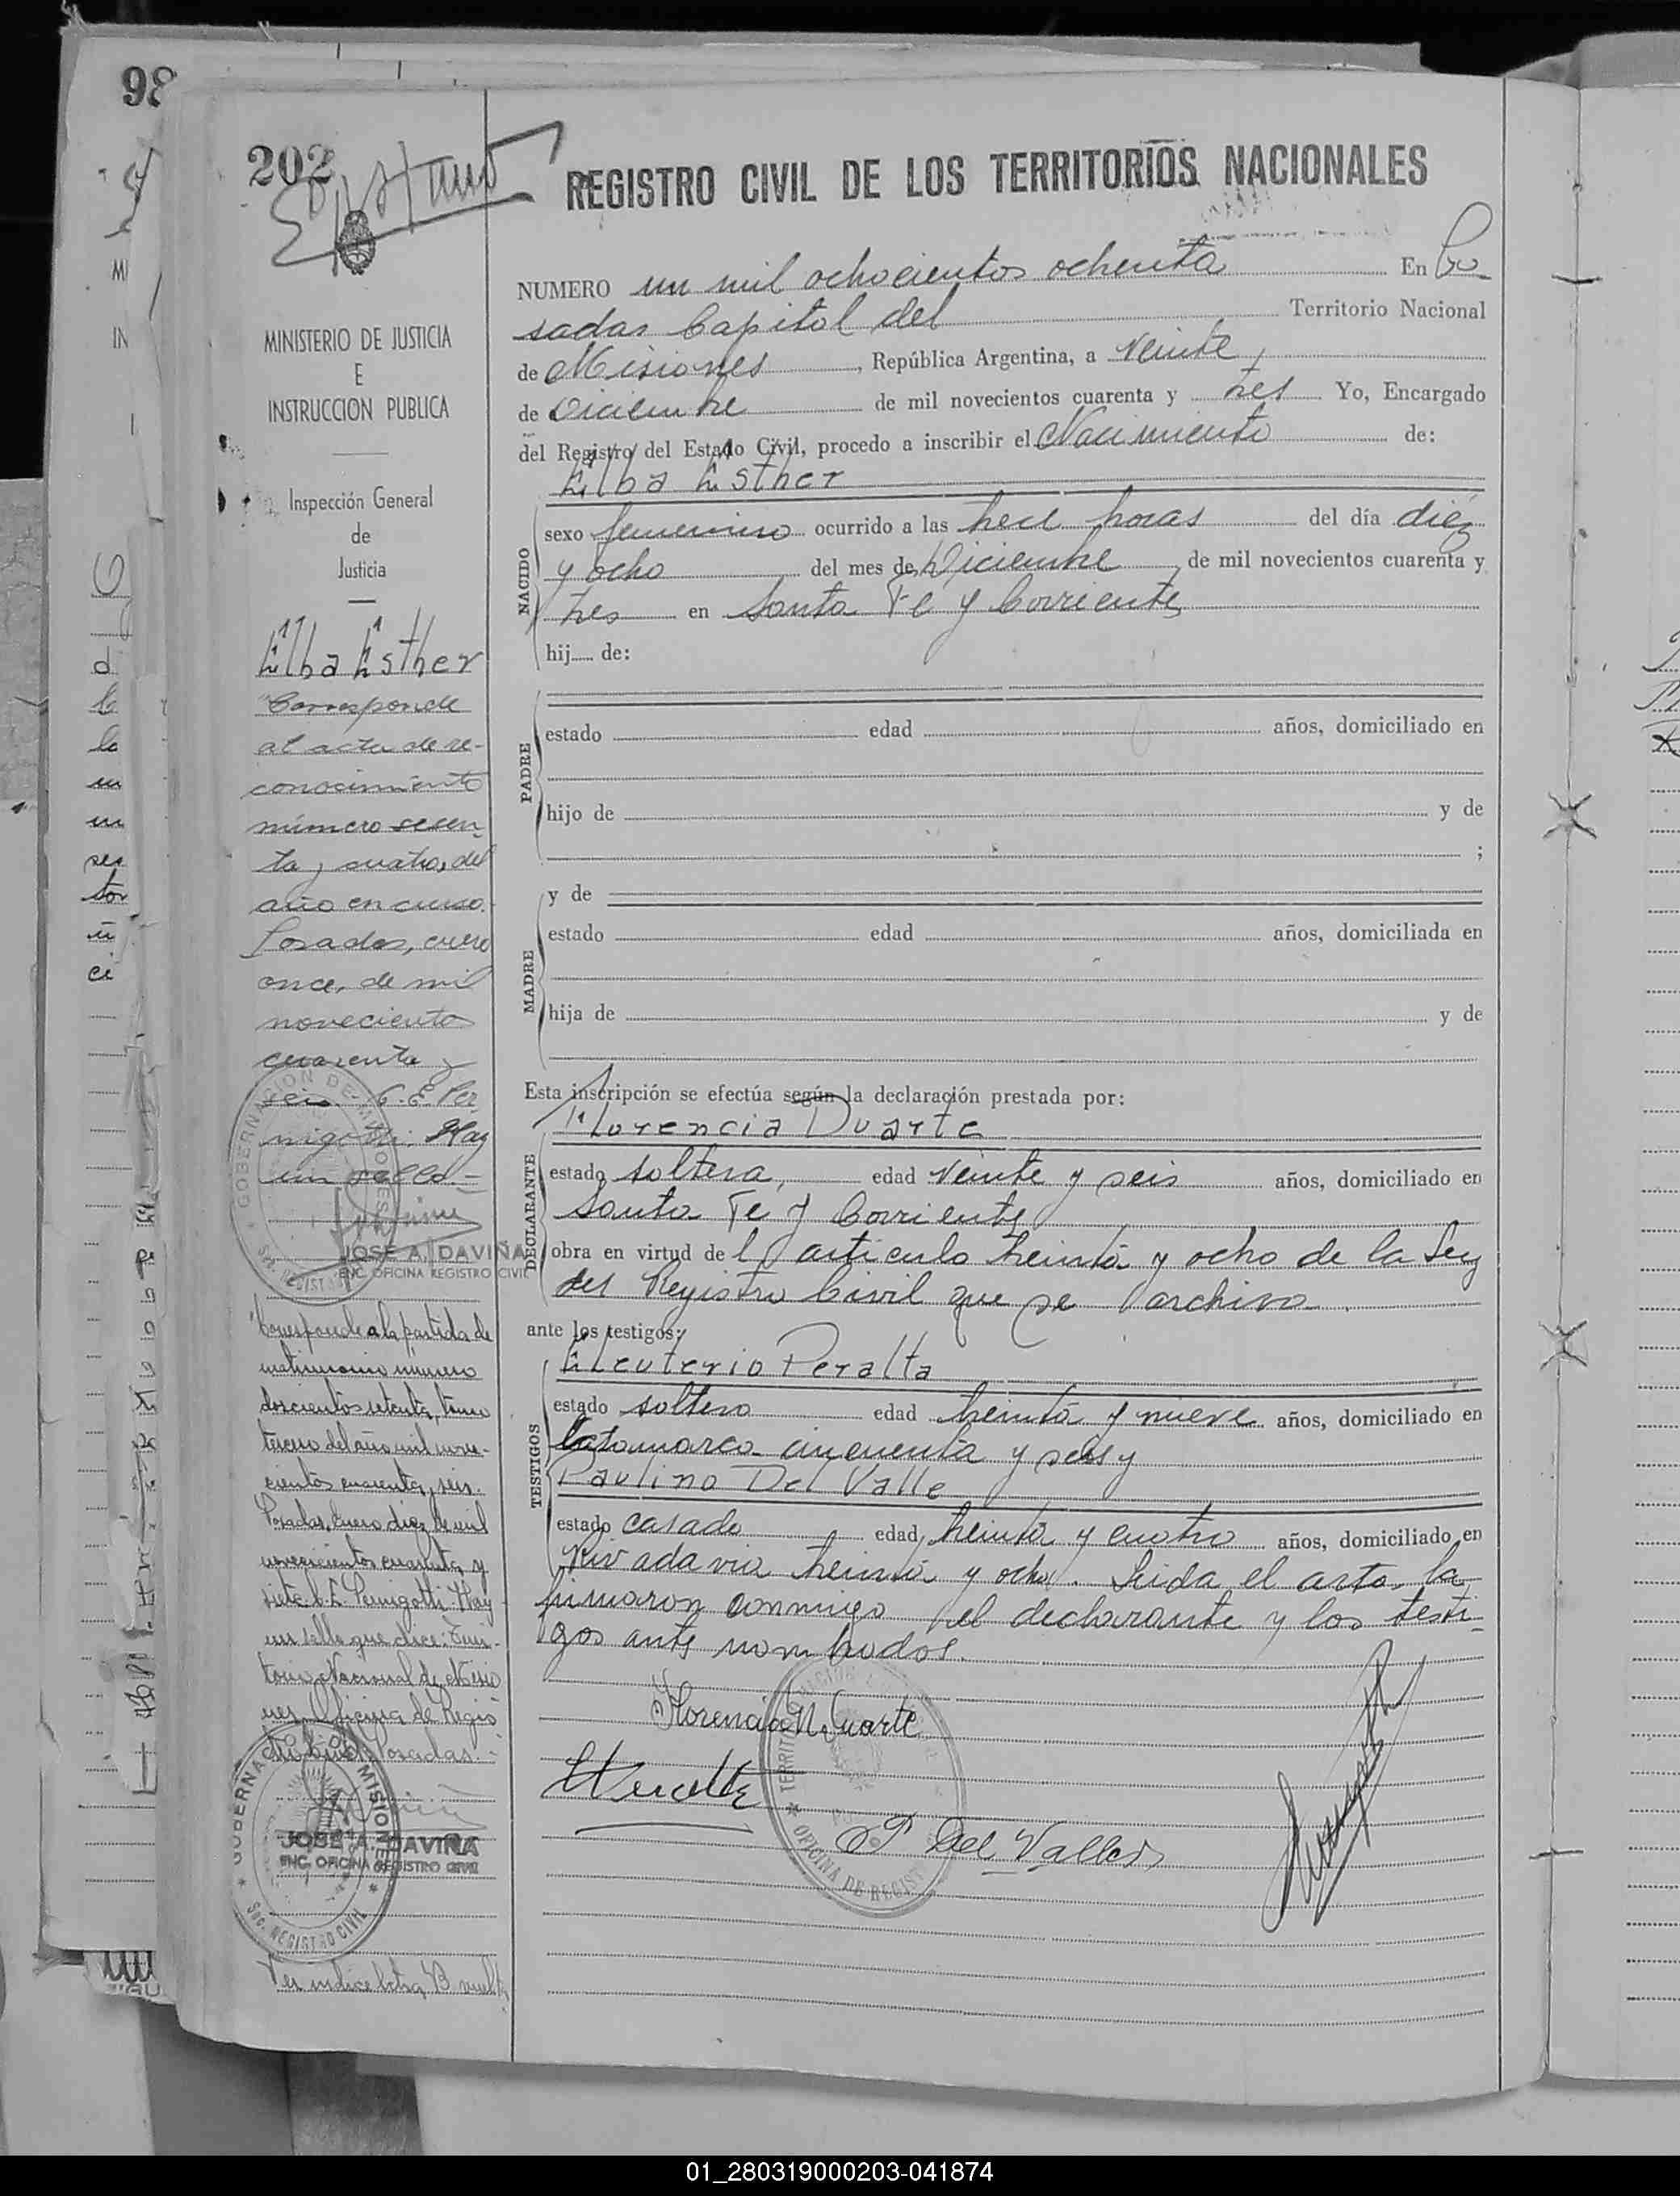 98
202
REGISTRO CIVIL DE LOS TERRITORIOS NACIONALES
NUMERO un mil ochocientos ochenta En Po
sadas Capital del Territorio Nacional
de Misiones, República Argentina, a veinte
de Diciembre de mil novecientos cuarenta y tres Yo, Encargado
del Registro del Estado Civil, procedo a inscribir el Nacimiento de:
Elba Esther
NACIDO
sexo femenino ocurrido a las trece horas del día diez
y ocho del mes de Diciembre de mil novecientos cuarenta y
tres en Santa Fe y Corrientes
hij de:
PADRE
estado edad años, domiciliado en
hijo de y de
;
MADRE
y de
estado edad años, domiciliada en
hija de y de
Esta inscripción se efectúa según la declaración prestada por:
Florencia Duarte
DECLARANTE
estado soltera, edad veinte y seis años, domiciliado en
Santa Fe y Corrientes
obra en virtud de l articulo treinta y ocho de la Ley
del Registro Civil que se archiva.
ante los testigos:
TESTIGOS
Eleuterio Peralta
estado soltero edad treinta y nueve años, domiciliado en
Catamarca cincuenta y seis y
Paulino Del Valle
estado casado edad treinta y cuatro años, domiciliado en
Rivadavia treinta y ocho. Leida el acta, la
firmaron conmigo el declarante y los testi-
gos ante nombrados.
Florencia Duarte
P Del Valle
TERRITORIO
OFICINA DE REGIST
MINISTERIO DE JUSTICIA
E
INSTRUCCION PUBLICA
Inspección General
de
Justicia
Elba Esther
"Corresponde
al acta de re-
conocimiento
número sesen-
ta y cuatro, del
año en curso.
Posadas, enero
once, de mil
novecientos
cuarenta y
seis.- C. E. Per
nigotti. Hay
un sello.-
GOBERNACION DE MISIONES
JOSE A. DAVIÑA
ENC. OFICINA REGISTRO CIVIL
"Corresponde a la partida de
matrimonio número
doscientos setenta, tomo
tercero del año mil nove-
cientos cuarenta y seis.
Posadas, Enero diez de mil
novecientos cuarenta y
siete. C. E. Pernigotti. Hay
un sello que dice: Terri-
torio Nacional de Misio
nes. Oficina de Regis
tro Civil Posadas.-
GOBERNACION DE MISIONES
JOSE A. DAVIÑA
ENC. OFICINA REGISTRO CIVIL
SEC. REGISTRO CIVIL
Ver indice letra B vuelta
01_280319000203-041874